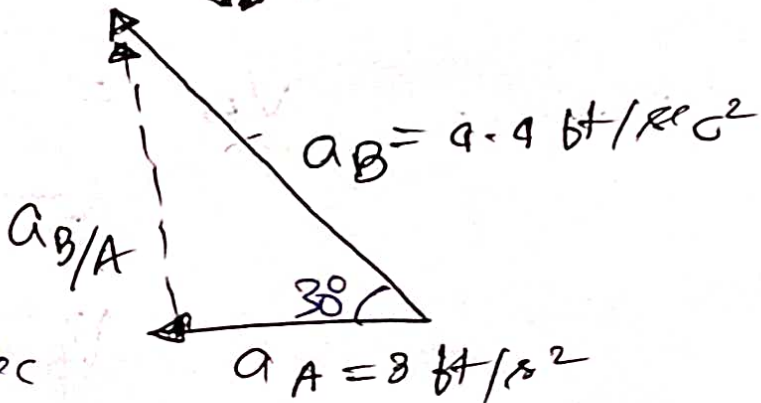 aB = 9.9 ft/sec²
aB/A
30°
ec
aA = 8 ft/s²